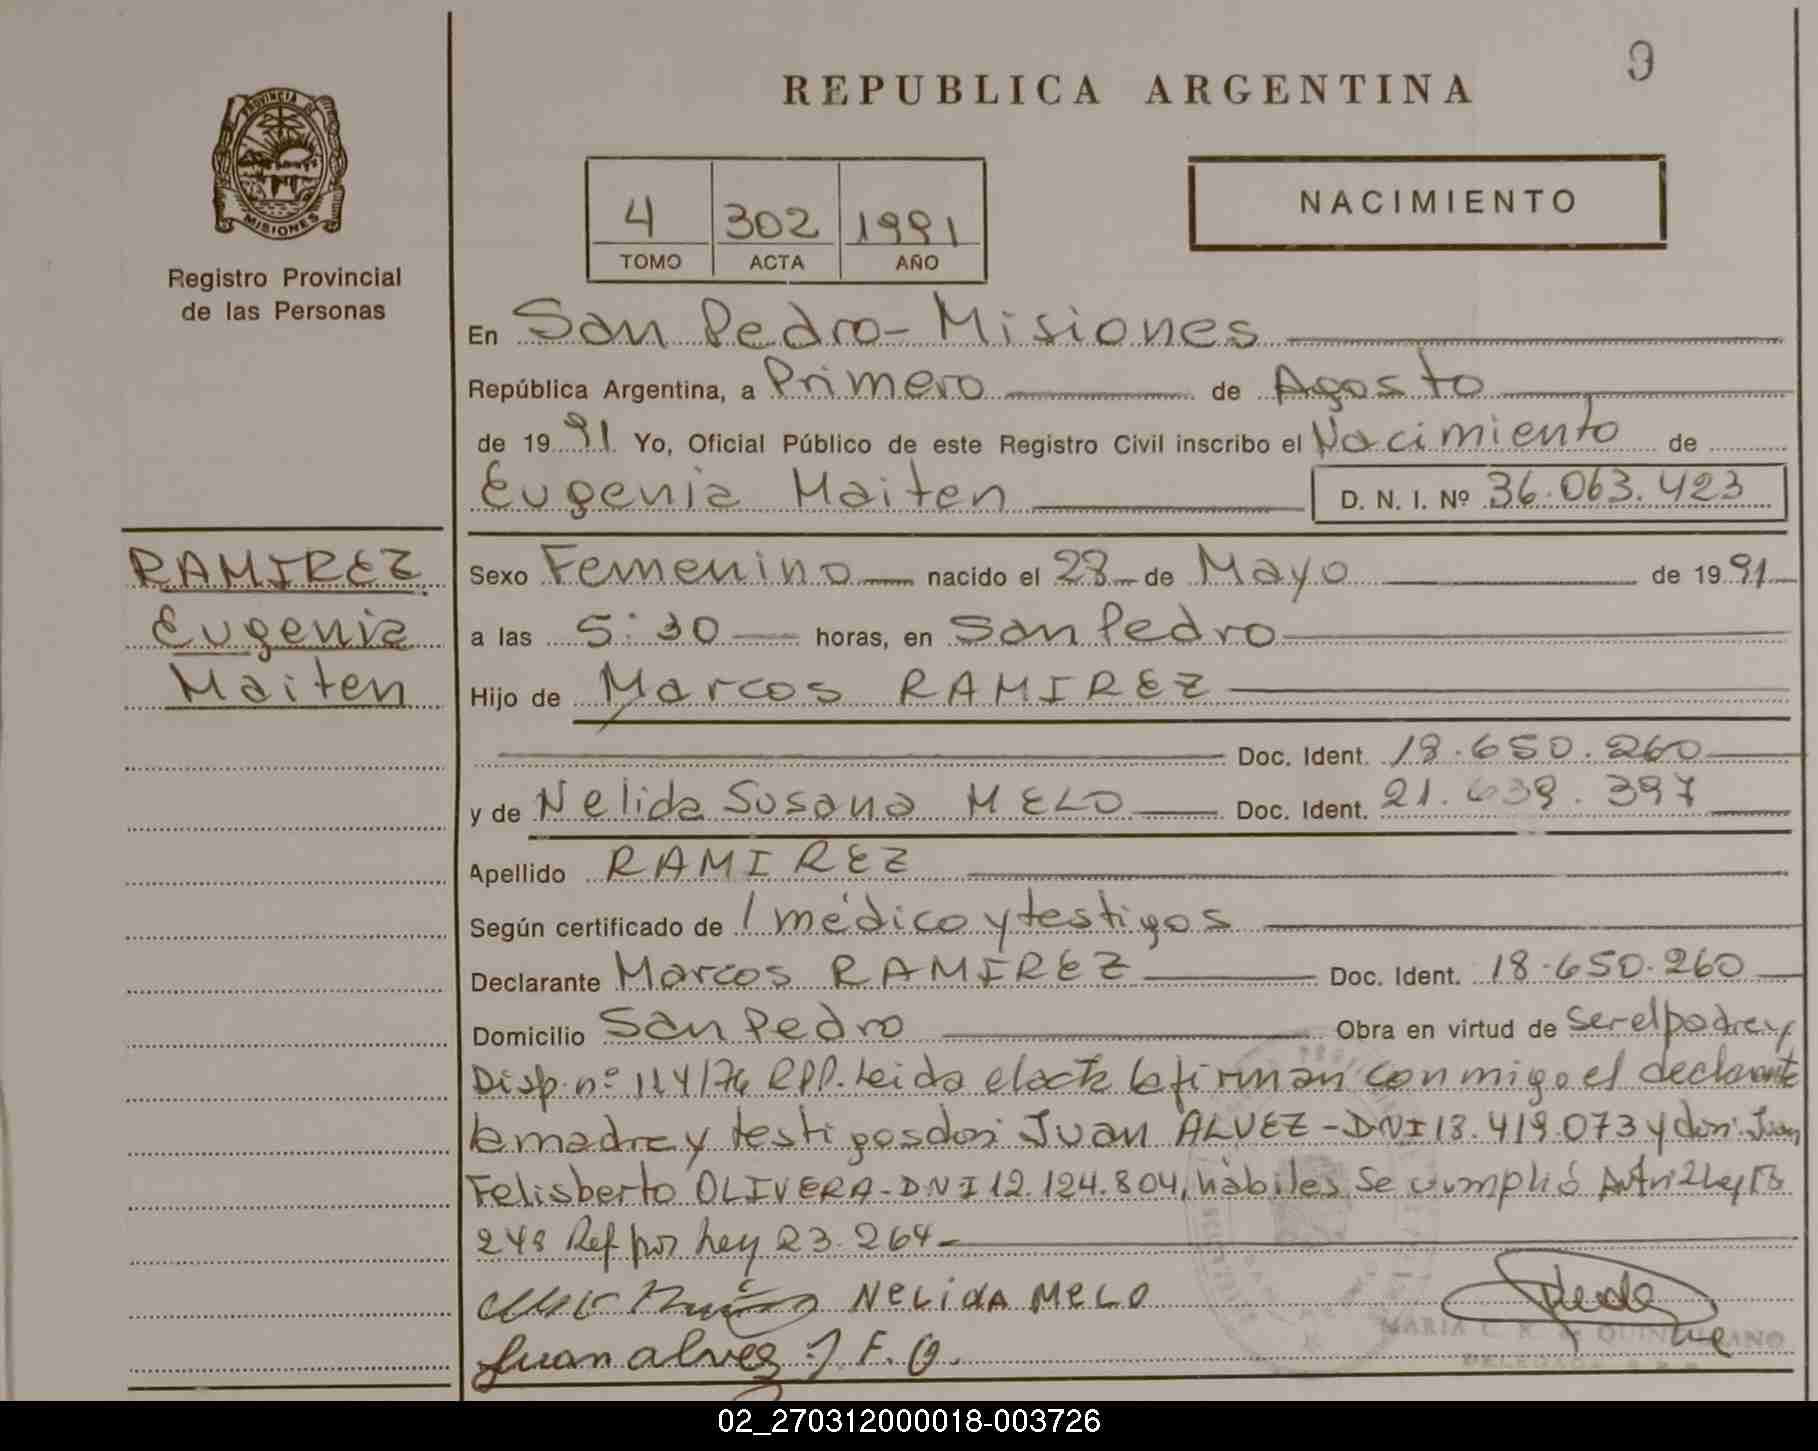 9
REPUBLICA ARGENTINA
PROVINCIA DE
MISIONES
Registro Provincial
de las Personas
4 302 1991
TOMO ACTA AÑO
NACIMIENTO
En San Pedro - Misiones
República Argentina, a Primero de Agosto
de 1991 Yo, Oficial Público de este Registro Civil inscribo el Nacimiento de
Eugenia Maiten D. N. I. Nº 36.063.423
RAMIREZ
Eugenia
Maiten
Sexo Femenino nacido el 28 de Mayo de 1991
a las 5:30 horas, en San Pedro
Hijo de Marcos RAMIREZ
Doc. Ident. 18.650.260
y de Nelida Susana MELO Doc. Ident. 21.639.397
Apellido RAMIREZ
Según certificado de 1 médico y testigos
Declarante Marcos RAMIREZ Doc. Ident. 18.650.260
Domicilio San Pedro Obra en virtud de ser el padre y
Disp. nº 114/76 RPP. Leida el acta la firman conmigo el declarante
la madre y testigos don Juan ALVEZ - DNI 13.419.073 y don Juan
Felisberto OLIVERA - DNI 12.124.804, hábiles. Se cumplió
248 Ref por Ley 23.264 -
NELIDA MELO
Juan alvez J. F. O.
MARIA C. R. de QUINTANO
DELEGADA
02_270312000018-003726